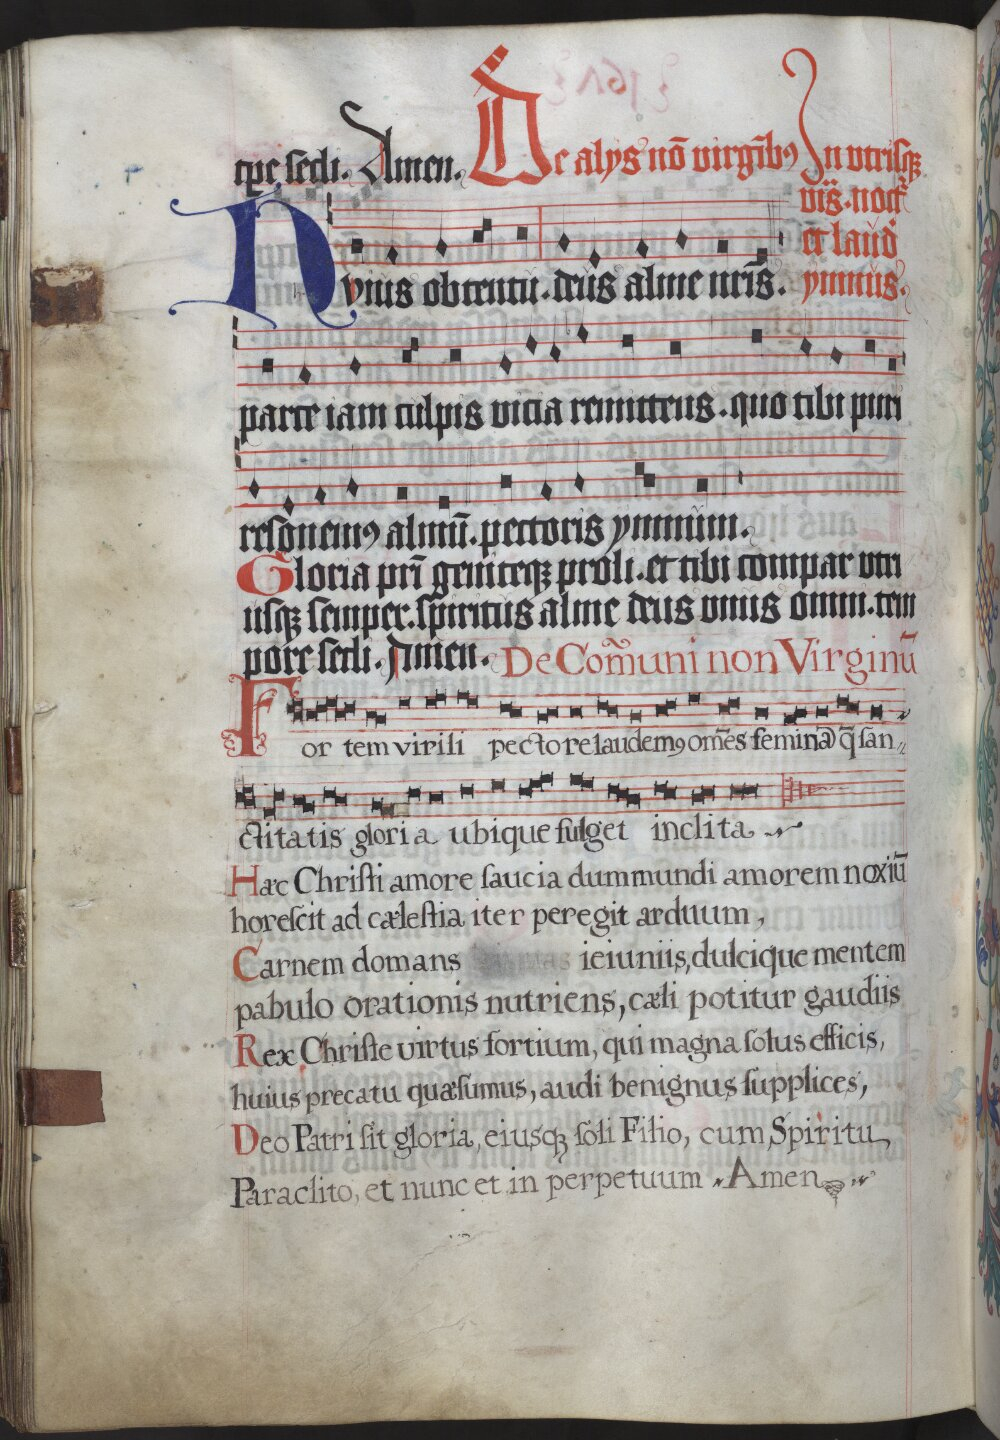 rpe secli. Amen. De alys nō virgīb9 In vtrisqꝫ
vīs. noct
et laud
ymnus.
Hvius obtentu. deus alme nr̄is.
parce iam culpis vicia remittens. quo tibi puri
resonem9 almū. pectoris ymnum.
Gloria pr̄i geniteqꝫ proli. et tibi compar vtri
usqꝫ semper. spiritus alme deus vnus omni. tem
pore secli. Amen. De Com̃uni non Virginū
For tem virili pectore laudem9 om̃es feminā q̄ san
ctitatis gloria ubique fulget inclita
Hæc Christi amore saucia dum mundi amorem noxiū
horescit ad cælestia iter peregit arduum,
Carnem domans ieiuniis, dulcique mentem
pabulo orationis nutriens, cæli potitur gaudiis
Rex Christe virtus fortium, qui magna solus efficis,
huius precatu quæsumus, audi benignus supplices,
Deo Patri sit gloria, eiusqꝫ soli Filio, cum Spiritu
Paraclito, et nunc et in perpetuum Amen